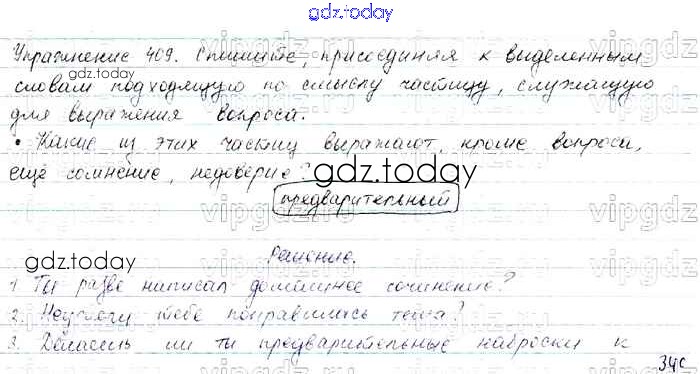 gdz.today
Упражнение 409. Спишите, присоединяя к выделенным
словам подходящую по смыслу частицу, служащую
для выражения вопроса.
• Какие из этих частиц выражают, кроме вопроса,
ещё сомнение, недоверие?
предварительный
Решение.
1. Ты разве написал домашнее сочинение?
2. Неужели тебе понравилась тема?
3. Делаешь ли ты предварительные наброски к